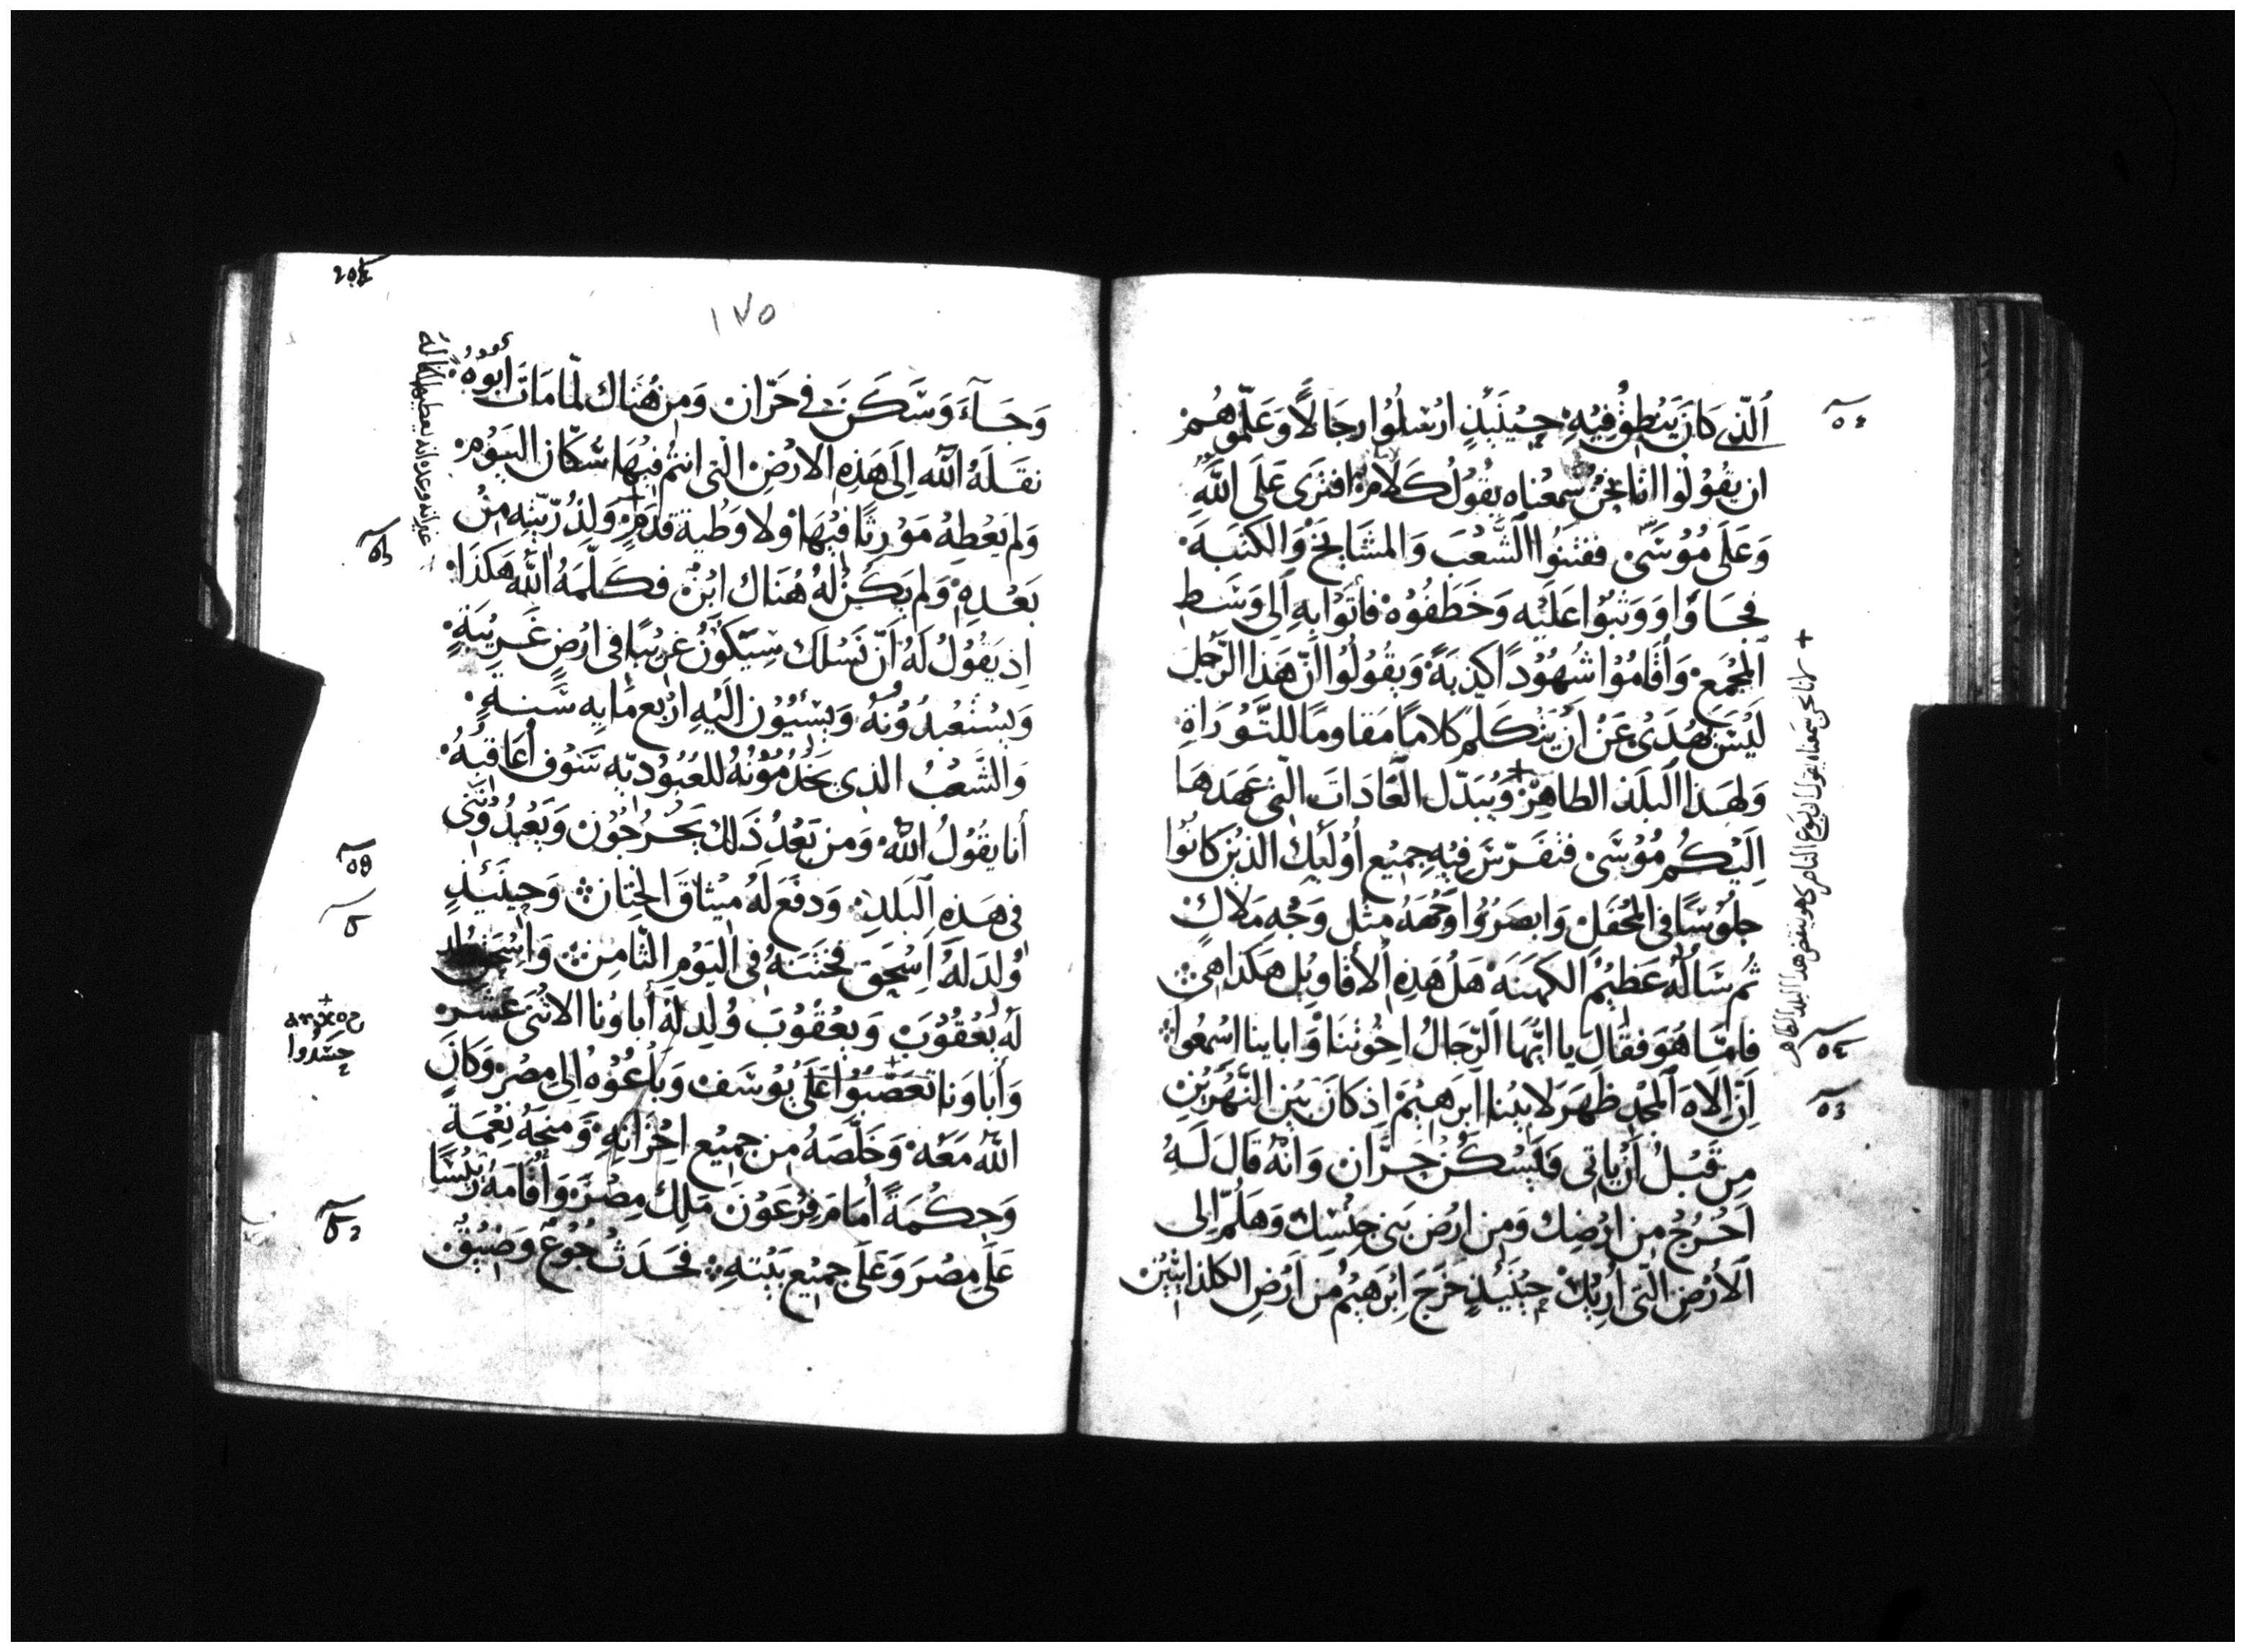 اَلّذِي كَانَ يَنْطِقُ فِيْهِ حِيْنَئِذٍ ارْسَلُوا رِجَالًا وَعَلّمُوهُمْ
ان يَقُوْلُوْا انّا نَحْنُ سَمِعْنَاه يَقُوْلُ كَلَامًا افتَرَى عَلَى اللَّهِ
وَعَلَى مُوْسَىٰ ففتَنُوا الشَّعْبَ وَالمشَايخَ وَالكتَبَة
فجَاؤا وَوَثبُوا عَلَيْه وَخَطَفُوْه فاَتَوْا بِهِ اَلِى وَسَطِ
اَلْمَجْمَعْ وَأَقَامُوْا شُهُوْدًا كَذَبَةً وَيقُوْلُوا انّ هَذَا الرَّجُلَ
لَيْسَ يَهْدَىْ عَنْ اَنْ يَتكَلّمَ كلامًا مَقاومًا للتَّوْرَاةِ
وَلهَذَا اَلبلَدْ الطاهِرْ وَيُبَدّل العَادَات الّتى عَهَدَهَا
اِلَيْكُم مُوْسَىٰ فتَفَرّسَ فِيْهِ جمِيْع أُوْلَئِكَ الذيْن كانُوْا
جلُوْسًا فِي المْحفَلْ وَابصَرُوْا وَجْهَهُ مثل وَجْه مَلَاكْ
ثُم سَالَهُ عَظِيْمُ اَلكهَنَة هَلْ هَذِهِ اْلأقاوِيْل هَكذا هِيْ
فامّا هُوَ فقَال يا ايُّهَا اَلرّجَالُ اخْوَتنَا وَاباينا اسْمَعُوا
اِنّ اِلَاهَ اَلمْجدِ ظهَرَ لابيْنا ابرَهِيْمَ اِذ كانَ بَيْن النّهْرَيْنِ
مِن قَبْلُ أَنْ يَاتي وَيَسْكُنْ حَرَّان وَانّهُ قَالَ لَهُ
اَخْرُجْ مِن ارْضِكَ وَمِن ارْض بَنِي جِنْسِكَ وَهَلُمّ الِى
اَلأَرْضِ الّتي أرِيْكْ حِيْنَئِذٍ خَرَجَ اِبْرَهِيْمُ مِن أَرْضِ الكلدانيّيْن
٥٤
٥٣
+ لاننا نحن سمعناه يقول ان يسوع الناصرى هو ينقض هذا البلد الطاهر
١٧٥
وَجَآءَ وَسَكَنَ في حَرّان وَمِن هُنَاك لمّا مَاتَ أَبُوْهُ
نقَلَهُ اَللّه اِلَى هَذِهِ الارْضِ الّتى انتُم فيْهَا سُكّان اليَوْم
وَلم يَعْطِهُ مَوْرِثًا فيْهَا وْلا وَطْية قدَمٍ وَلِذُرّيّتِه مِنْ
بَعْدِهِ وَلم يَكُنْ لَهُ هُنَاكَ ابْنْ فكَلّمَهُ اَللَّه هَكذَا
اِذ يَقُوْلُ لَهُ اَنّ نَسْلَكَ سَيَكوْنُ غرِيْبًا فى ارْضٍ غَرِيْبَةٍ
وَيَسْتَعْبدُوْنَهُ وَيسْيُوْن اِلَيْهِ ارْبَع مَايه سَنَةٍ
وَالشَّعْبُ الذِى يَخْدُمُوْنَهُ للعُبُوْدِيّه سَوْف أُعَاقبُهُ
أنا يقُوْلُ اللَّهُ وَمن بَعْدُ ذَلك يَخْرُجُوْن وَيَعْبُدُوْنَنى
فى هَذِهِ اَلبَلَدِ وَدفَعَ لَهُ مِيْثاقَ الخِتَان وَحِيْنَئِذٍ
وُلدَ لَهُ اِسْحَق فخَتنَهُ فِى اَليَوْمِ الثّامِنْ وَاسْحَق وُلِد
لَهُ يُعْقُوْبَ وَيعْقُوْبَ وُلِد لَهُ أباؤنا الاثْنَى عَشَر
وَأَباؤنا تعَصّبُوْا عَلَى يُوْسَفْ وَباعُوْه اِلى مِصْرْ وَكانَ
اَللّه مَعَهْ وَخَلّصَهُ مِن جمِيْع احْزَانِهِ وَمنحَهُ نِعْمَة
وَحِكْمَةً أمَامَ فِرْعَوْنَ مَلِك مِصْرَ وَأَقَامَهُ رَئيْسًا
عَلَى مصْرَ وَعَلَى جمِيْع بَيْتهِ فحَدَثَ جُوْعْ وَضيْقْ
حسَدُوا